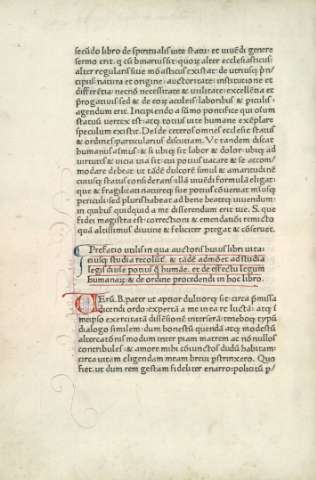 secūdo libro de spiritualis uite statu: et uiuēdi genere
sermo erit. q cū binarius sit: quorū alter ecclesiasticus:
alter regularis siue mōasticus existat: de utriusq̄ prī/
cipiis: natura et origine: auctoritate: institutione et
differētia: necnō necessitate & utilitate: excellētia et
prerogatiuis sed & de eorū aculeis: laboribus & piculis:
agendum erit. Incipiendo a sūmo pontifice qui oīum
status uertex est: atq totius uite humane exēplare
speculum existit. Deinde ceteros omnes ecclesie status
& ordines particularius discutiam. Ut tandem discat
humanus animus: & si ubiq sit labor & dolor: ubiq ad
uirtutis & uicia uia sit: cui potius uacare & se accom/
modare debeat: ut tādē dulcorē simul & amaritudinē
cuiusq status considerans: illā uiuēdi formulā eligat:
que & fragilitati nature sue potius cōueniat: minusq
periculi: sed plurishabeat ad bene beateq uiuendum:
in quibus quidquid a me disserendum erit tue S. que
fidei magistra est: correctioni & emendationi recto
quā altissimus diuine & feliciter pregat & cōseruet.
Prefatio utilis in qua auctoris huius libri uita:
eiusq studia recolūt. & tādē admōet ad studia
legis diuīe potius q̄ humāe. et de effectu legum
humanarū: & de ordine procedendi in hoc libro.
VErū. B. pater ut aptior dulciorq sit circa p̄missa
dicendi ordo: expertā a me in ea re luctā: atq ī
meipso exercitatā dissēsionē interserā: tenebōq typū
dialogo similem: dum honestū quendā atq modestū
altercatiōis modum inter piam matrem ac nō nullos
contribules: & amore mihi cōiunctos dudū habitam:
circa uitam eligendam meam breui pstrinxero. Quo
fiet: ut dum rem gestam fideliter enarro: politicū p/